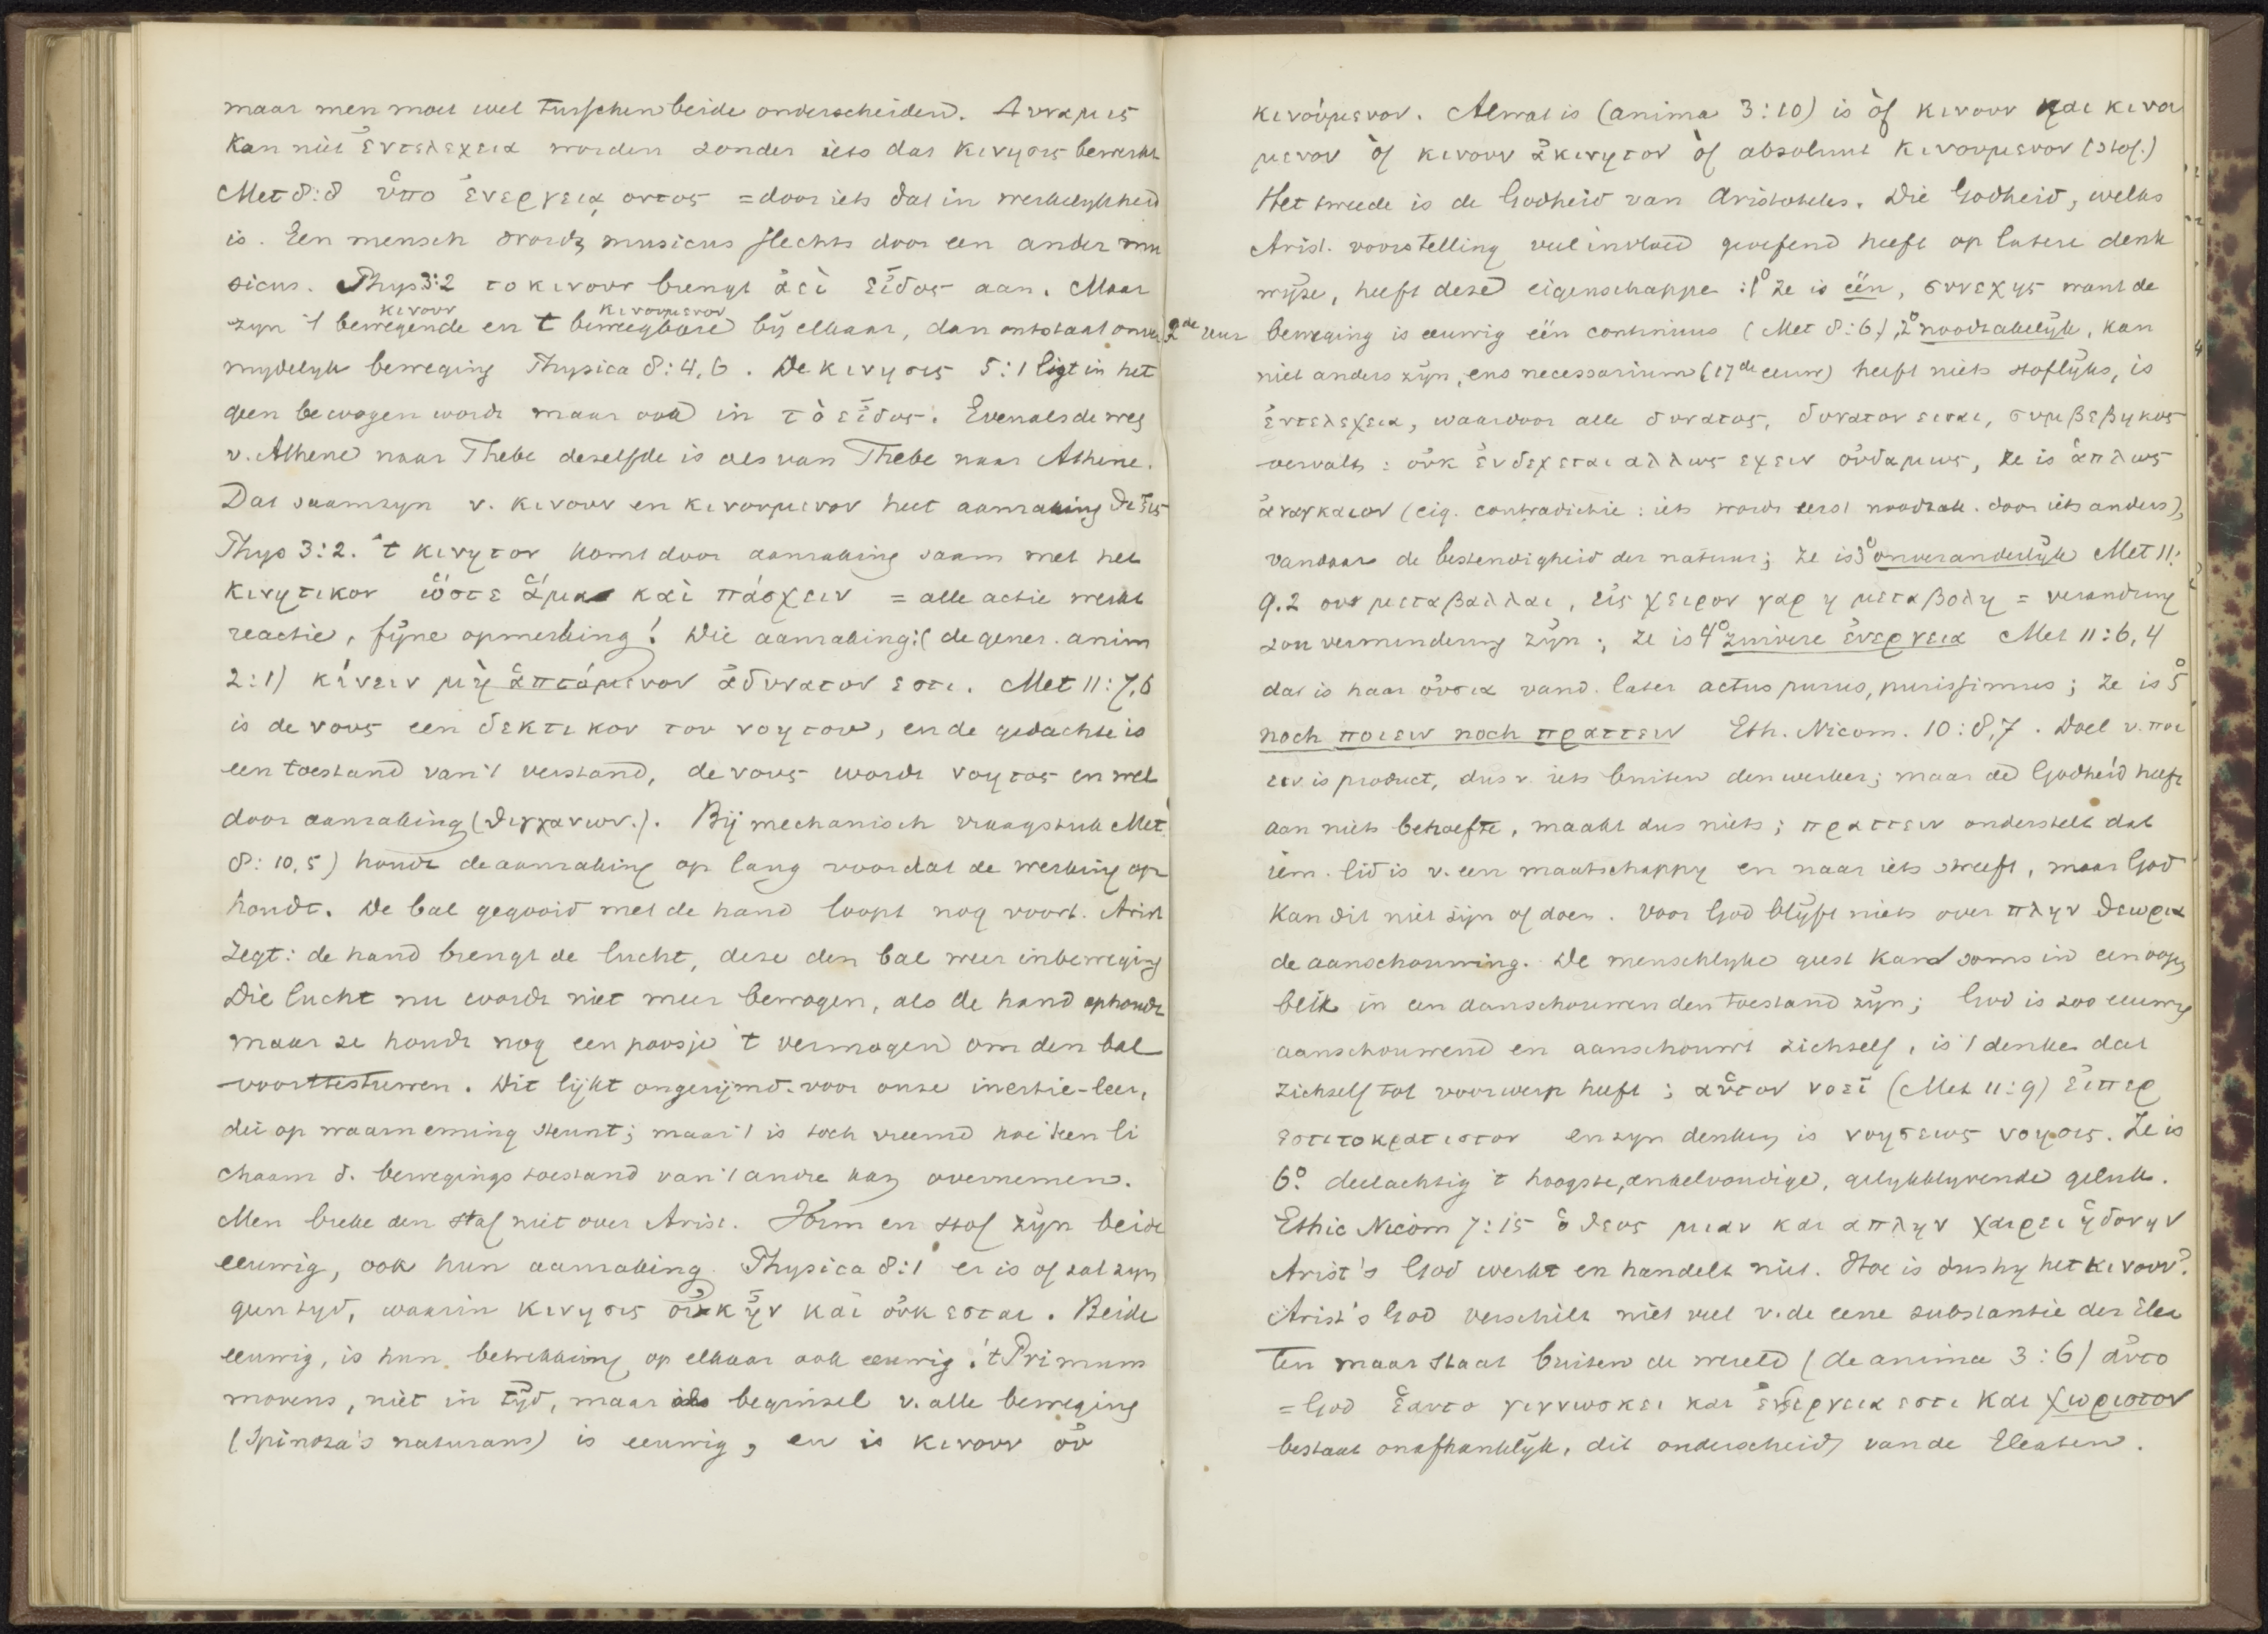 maar men moet wel tusschen beide onderscheiden. Δυναμις
kan niet ἐντελεχεια worden zonder iets dat κινησις bewerkt
Met 8:8 ὑπο ἐνεργειᾳ οντος = door iets dat in werkelykheid
is. Een mensch wordt musicus slechts door een ander mu
sicus. Phys 3:2 το κινουν brengt ἀεὶ εἶδος aan. Maar
κινουν κινουμενον
zyn 't bewegende en 't beweegbare bij elkaar, dan ontstaat onver
mydelyk beweging Physica 8:4,6. De κινησις 5:1 ligt in het
geen bewogen wordt maar ook in τὸ εἶδος. Evenals de weg
v. Athene naar Thebe dezelfde is als van Thebe naar Athene.
Dat saamzyn v. κινουν en κινουμενον heet aanraking θιξις
Phys 3:2. 't κινητον komt door aanraking saam met het
κινητικον ὥστε ἅμα καὶ πάσχειν = alle actie werkt
reactie, fijne opmerking! Die aanraking: (de gener. anim
2:1) κίνειν μὴ ἁπτόμενον ἀδυνατον εστι. Met 11:7,6
is de νους een δεκτικον του νοητου, en de gedachte is
een toestand van 't verstand, de νους wordt νοητος en wel
door aanraking (θιγγανων.). Bij mechanisch vraagstuk Met
8:10,5) houdt de aanraking op lang voordat de werking op
houdt. De bal gegooid met de hand loopt nog voort. Arist
zegt: de hand brengt de lucht, deze den bal weer in beweging
Die lucht nu wordt niet meer bewogen, als de hand ophoudt
maar ze houdt nog een poosje 't vermogen om den bal
voorttestuwen. Dit lijkt ongerijmd voor onze inertie-leer,
die op waarneming steunt; maar 't is toch vreemd hoe 't een li
chaam d. bewegingstoestand van 't andre kan overnemen.
Men breke den staf niet over Arist. Vorm en stof zijn beide
eeuwig, ook hun aanraking. Physica 8:1 er is of zal zyn
geen tyd, waarin κινησις οὐκ ἦν καὶ οὐκ εσται. Beide
eeuwig, is hun betrekking op elkaar ook eeuwig. 't Primum
movens, niet in tyd, maar als beginsel v. alle beweging
(Spinoza's naturans) is eeuwig, en is κινουν οὐ
κινούμενον. Al wat is (anima 3:10) is òf κινουν και κινου
μενον òf κινουν ἀκινητον òf absoluut κινουμενον (stof.)
Het tweede is de Godheid van Aristoteles. Die Godheid, welks
Arist. voorstelling veel invloed geoefend heeft op latere denk
wijze, heeft deze eigenschappe: 1º ze is één, συνεχης want de
2de uur beweging is eeuwig één continuus (Met 8:6), 2º noodzakelijk, kan
niet anders zijn, ens necessarium (17de eeuw) heeft niets stoflijks, is
ἐντελεχεια, waardoor alle δυνατος, δυνατον ειναι, συμβεβηκος
vervalt: οὐκ ἐνδεχεται αλλως εχειν οὐδαμως, ze is ἁπλως
ἀναγκαιον (eig. contradictie: iets wordt eerst noodzak. door iets anders),
vandaar de bestendigheid der natuur; ze is 3º onveranderlijk Met 11:
9.2 ου μεταβαλλαι, εἰς χειρον γαρ η μεταβολη = verandring
zou vermindering zijn; ze is 4º zuivere ἐνεργεια Met 11:6,4
dat is haar οὐσια vand. later actus purus, purissimus; ze is 5º
noch ποιειν noch πραττειν Eth. Nicom. 10:8,7. Doel v. ποι
ειν is product, dus v. iets buiten den werker; maar de Godheid heeft
aan niets behoefte, maakt dus niets; πραττειν onderstelt dat
iem. lid is v. een maatschappy en naar iets streeft, maar God
kan dit niet zijn of doen. Voor God blijft niets over πλην θεωρια
de aanschouwing. De menschlyke geest kan soms in een oogen
blik in een aanschouwenden toestand zijn; God is zoo eeuwig
aanschouwend en aanschouwt zichzelf, is 't denken dat
zichzelf tot voorwerp heeft; αὑτον νοεῖ (Met 11:9) εἰπερ
εστι το κρατιστον en zyn denken is νοησεως νοησις. Ze is
6º. deelachtig 't hoogste, enkelvoudige, gelykblyvende geluk.
Ethic Nicom 7:15 ὁ θεος μιαν και απλην χαιρει ἡδονην
Arist's God werkt en handelt niet. Hoe is dus hy het κινουν?
Arist's God verschilt niet veel v. de eene substantie der Elea
ten maar staat buiten de wereld (de anima 3:6) αὐτο
= God ἑαυτο γιγνωσκει και ἐνεργεια εστι και χωριστον
bestaat onafhanklijk, dit onderscheidt van de Eleaten.